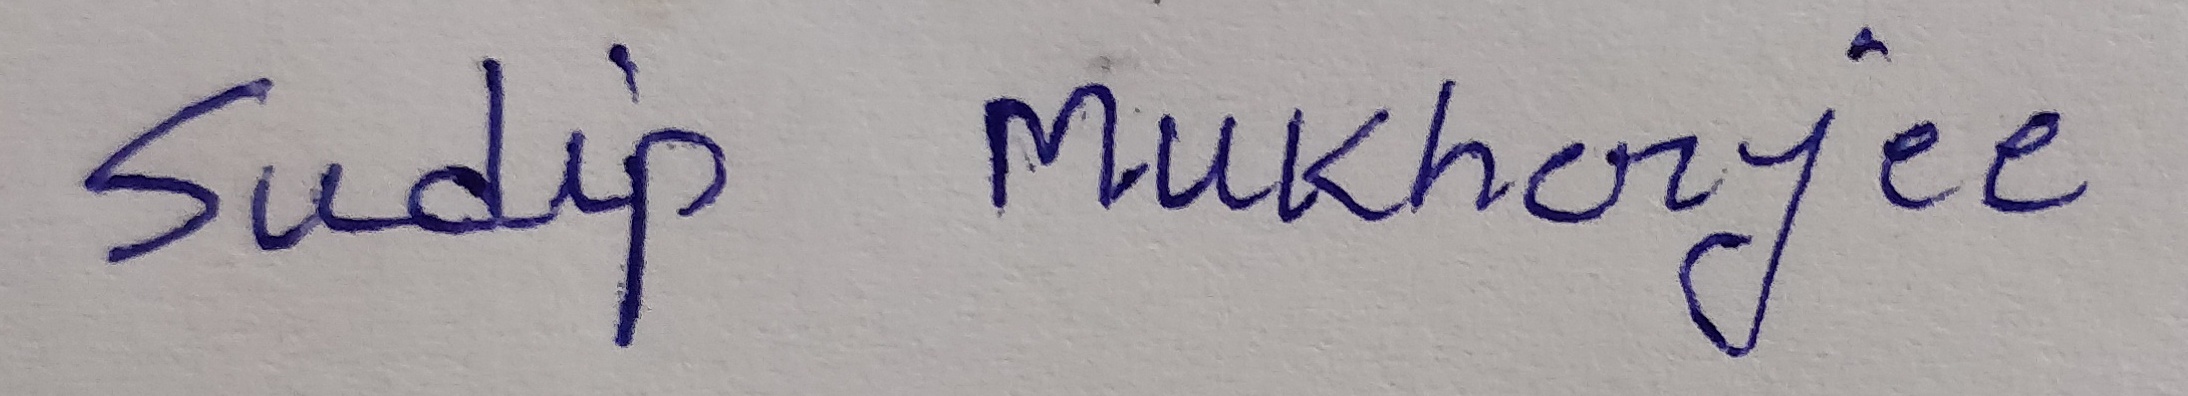 Sudip Mukherjee